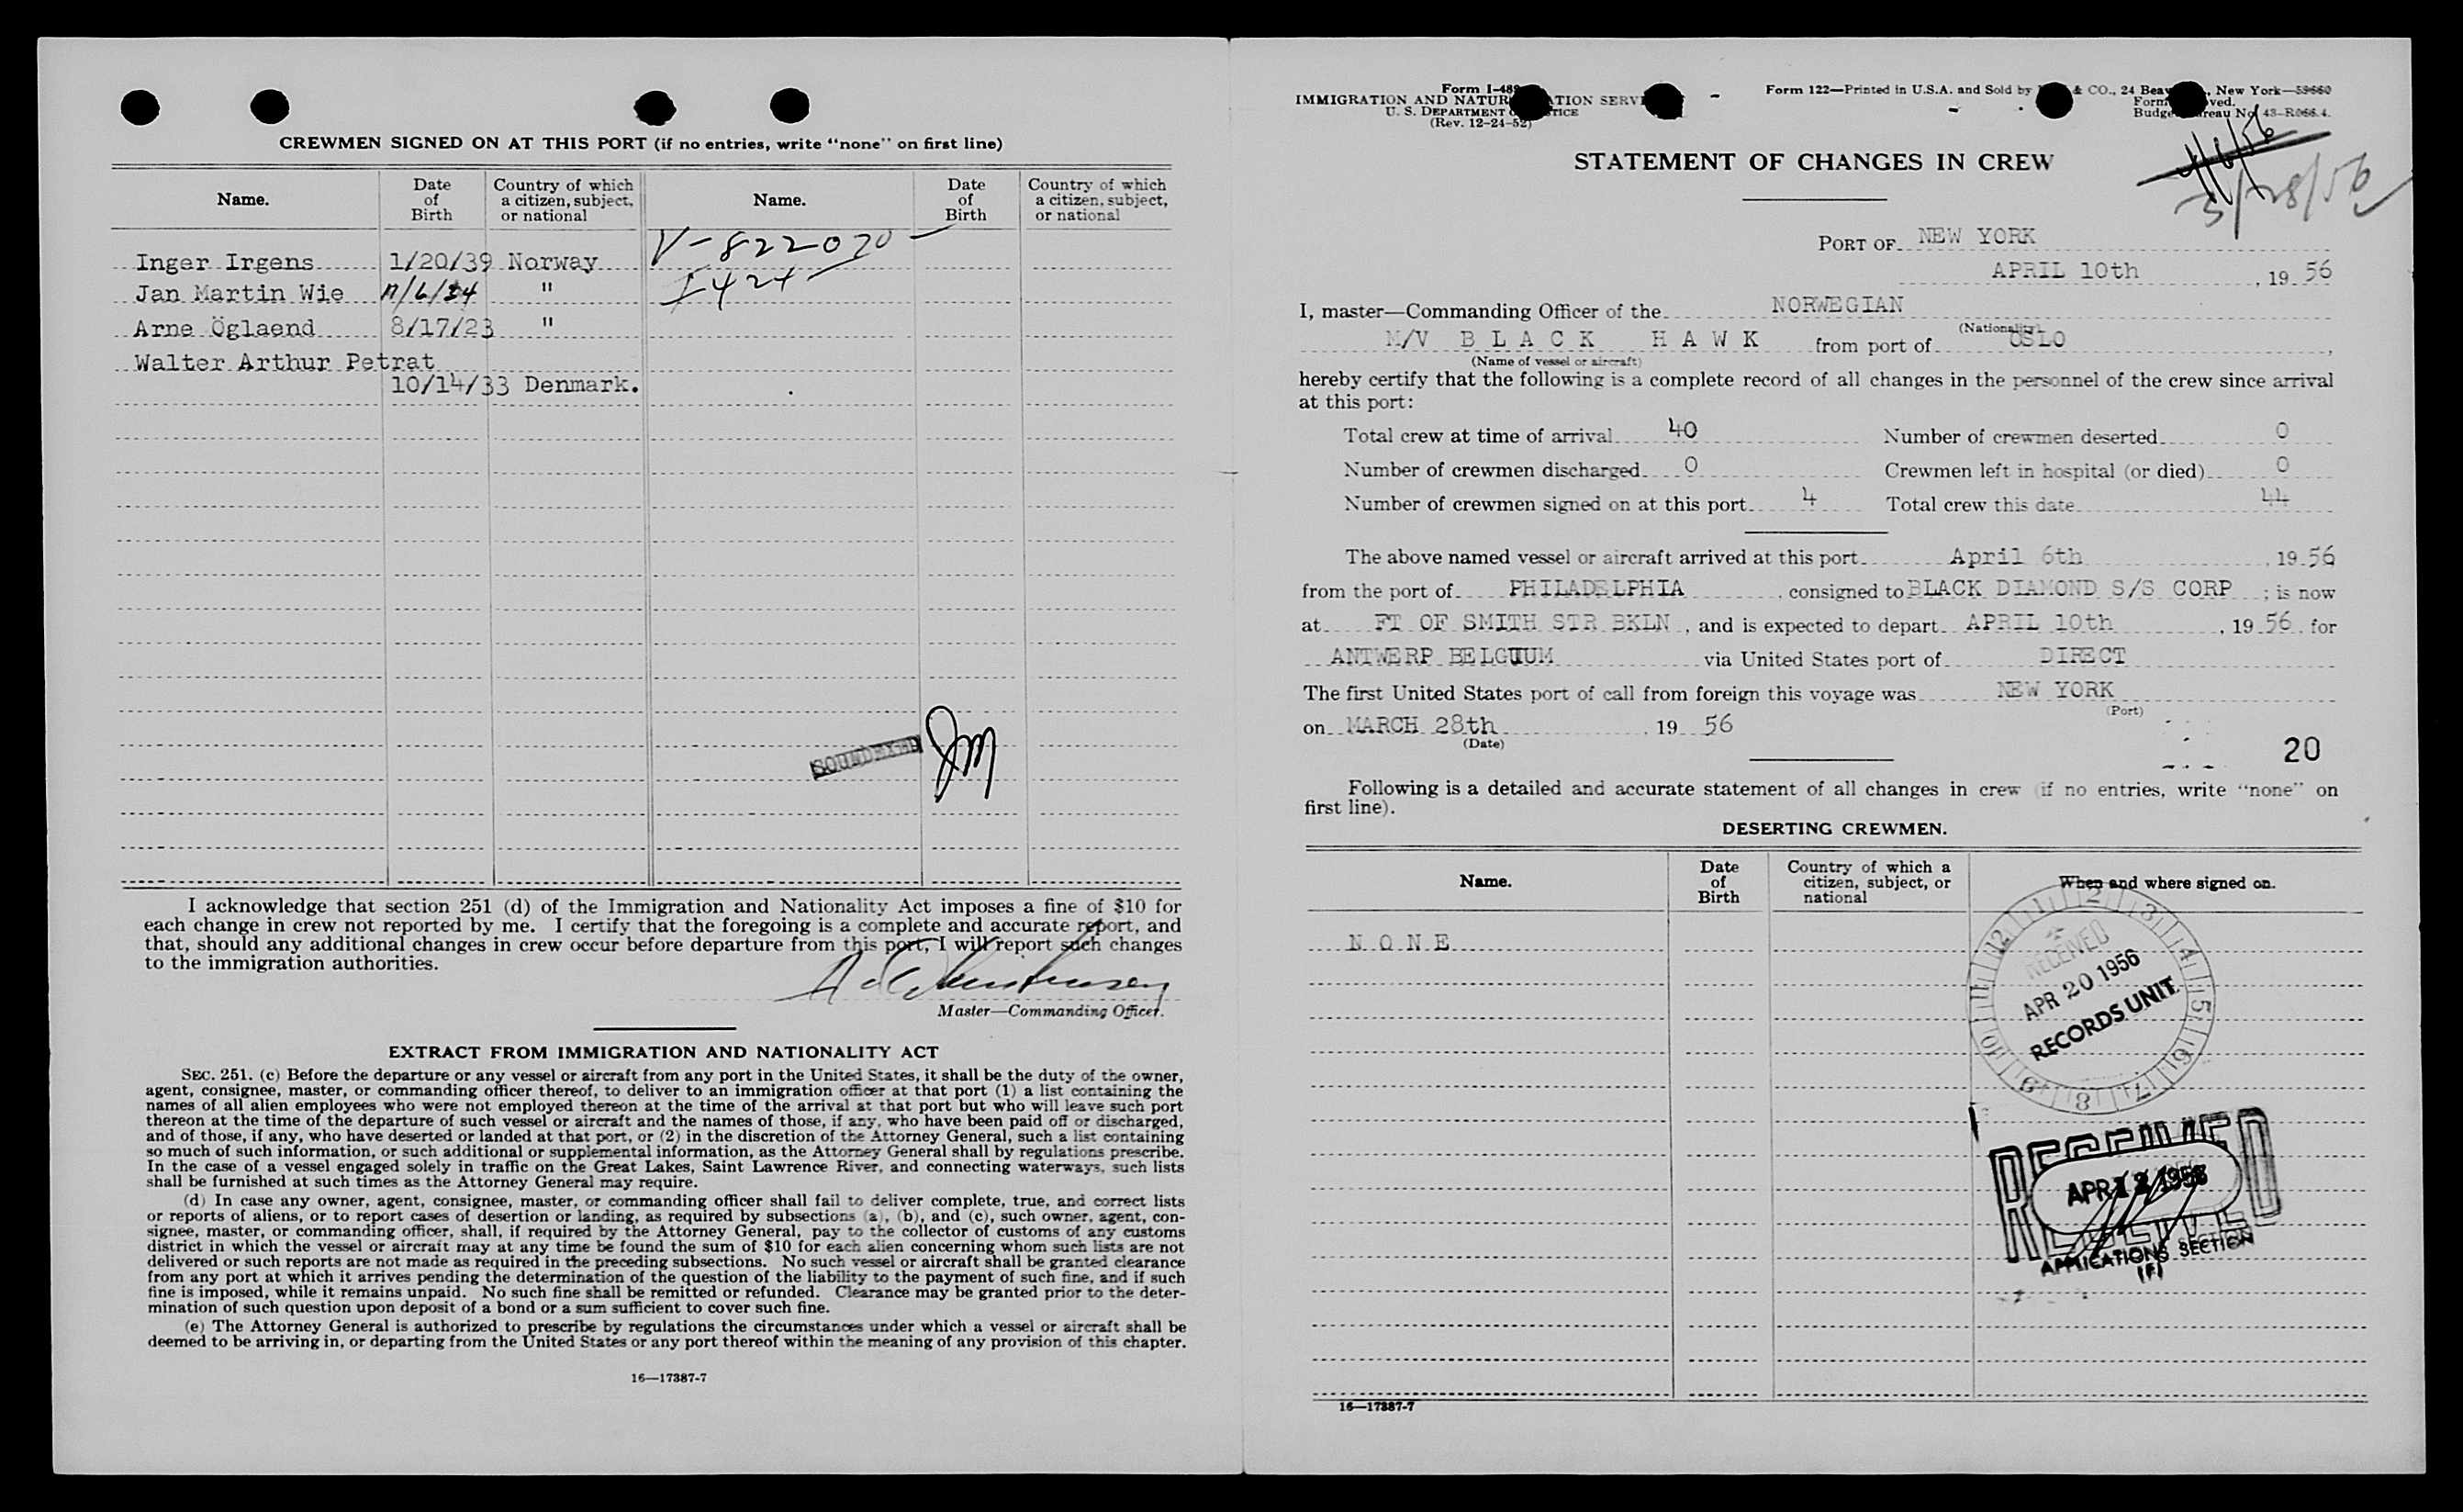 CREWMEN SIGNED ON AT THIS PORT (if no entries, write "none" on first line)
Name.
Date
of
Birth
Country of which
a citizen, subject,
or national
Name.
Date
of
Birth
Country of which
a citizen, subject,
or national
V-822070
I424
Inger Irgens 1/20/39 Norway
Jan Martin Wie "
Arne Öglaend 8/17/23 "
Walter Arthur Petrat
10/14/33 Denmark.
SOUNDEXED
I acknowledge that section 251 (d) of the Immigration and Nationality Act imposes a fine of $10 for
each change in crew not reported by me. I certify that the foregoing is a complete and accurate report, and
that, should any additional changes in crew occur before departure from this port, I will report such changes
to the immigration authorities.
Master—Commanding Officer.
EXTRACT FROM IMMIGRATION AND NATIONALITY ACT
SEC. 251. (c) Before the departure or any vessel or aircraft from any port in the United States, it shall be the duty of the owner,
agent, consignee, master, or commanding officer thereof, to deliver to an immigration officer at that port (1) a list containing the
names of all alien employees who were not employed thereon at the time of the arrival at that port but who will leave such port
thereon at the time of the departure of such vessel or aircraft and the names of those, if any, who have been paid off or discharged,
and of those, if any, who have deserted or landed at that port, or (2) in the discretion of the Attorney General, such a list containing
so much of such information, or such additional or supplemental information, as the Attorney General shall by regulations prescribe.
In the case of a vessel engaged solely in traffic on the Great Lakes, Saint Lawrence River, and connecting waterways, such lists
shall be furnished at such times as the Attorney General may require.
(d) In case any owner, agent, consignee, master, or commanding officer shall fail to deliver complete, true, and correct lists
or reports of aliens, or to report cases of desertion or landing, as required by subsections (a), (b), and (c), such owner, agent, con-
signee, master, or commanding officer, shall, if required by the Attorney General, pay to the collector of customs of any customs
district in which the vessel or aircraft may at any time be found the sum of $10 for each alien concerning whom such lists are not
delivered or such reports are not made as required in the preceding subsections. No such vessel or aircraft shall be granted clearance
from any port at which it arrives pending the determination of the question of the liability to the payment of such fine, and if such
fine is imposed, while it remains unpaid. No such fine shall be remitted or refunded. Clearance may be granted prior to the deter-
mination of such question upon deposit of a bond or a sum sufficient to cover such fine.
(e) The Attorney General is authorized to prescribe by regulations the circumstances under which a vessel or aircraft shall be
deemed to be arriving in, or departing from the United States or any port thereof within the meaning of any provision of this chapter.
16—17387-7
Form I-489
IMMIGRATION AND SERV
U. S. DEPARTMENT
(Rev. 12-24-52)
Form 122—Printed in U.S.A. and Sold by & CO., 24 New York—59660
Budget No. 43-R066.4.
4/6/56
3/28/56
STATEMENT OF CHANGES IN CREW
PORT OF NEW YORK
APRIL 10th, 19 56
I, master—Commanding Officer of the NORWEGIAN
(Nationality)
M/V B L A C K H A W K from port of OSLO,
(Name of vessel or aircraft)
hereby certify that the following is a complete record of all changes in the personnel of the crew since arrival
at this port:
Total crew at time of arrival 40 Number of crewmen deserted 0
Number of crewmen discharged 0 Crewmen left in hospital (or died) 0
Number of crewmen signed on at this port 4 Total crew this date 44
The above named vessel or aircraft arrived at this port April 6th, 19 56
from the port of PHILADELPHIA, consigned to BLACK DIAMOND S/S CORP; is now
at FT OF SMITH STR BKLN, and is expected to depart APRIL 10th, 19 56 for
ANTWERP BELGIUM via United States port of DIRECT
The first United States port of call from foreign this voyage was NEW YORK
(Port)
on MARCH 28th, 19 56
(Date)
20
Following is a detailed and accurate statement of all changes in crew (if no entries, write "none" on
first line).
DESERTING CREWMEN.
Name.
Date
of
Birth
Country of which a
citizen, subject, or
national
When and where signed on.
N O N E
12 1 2 3 4 5 6 7 8 9 10 11
RECEIVED
APR 20 1956
RECORDS UNIT
RECEIVED
APPLICATIONS SECTION
(F)
16—17387-7